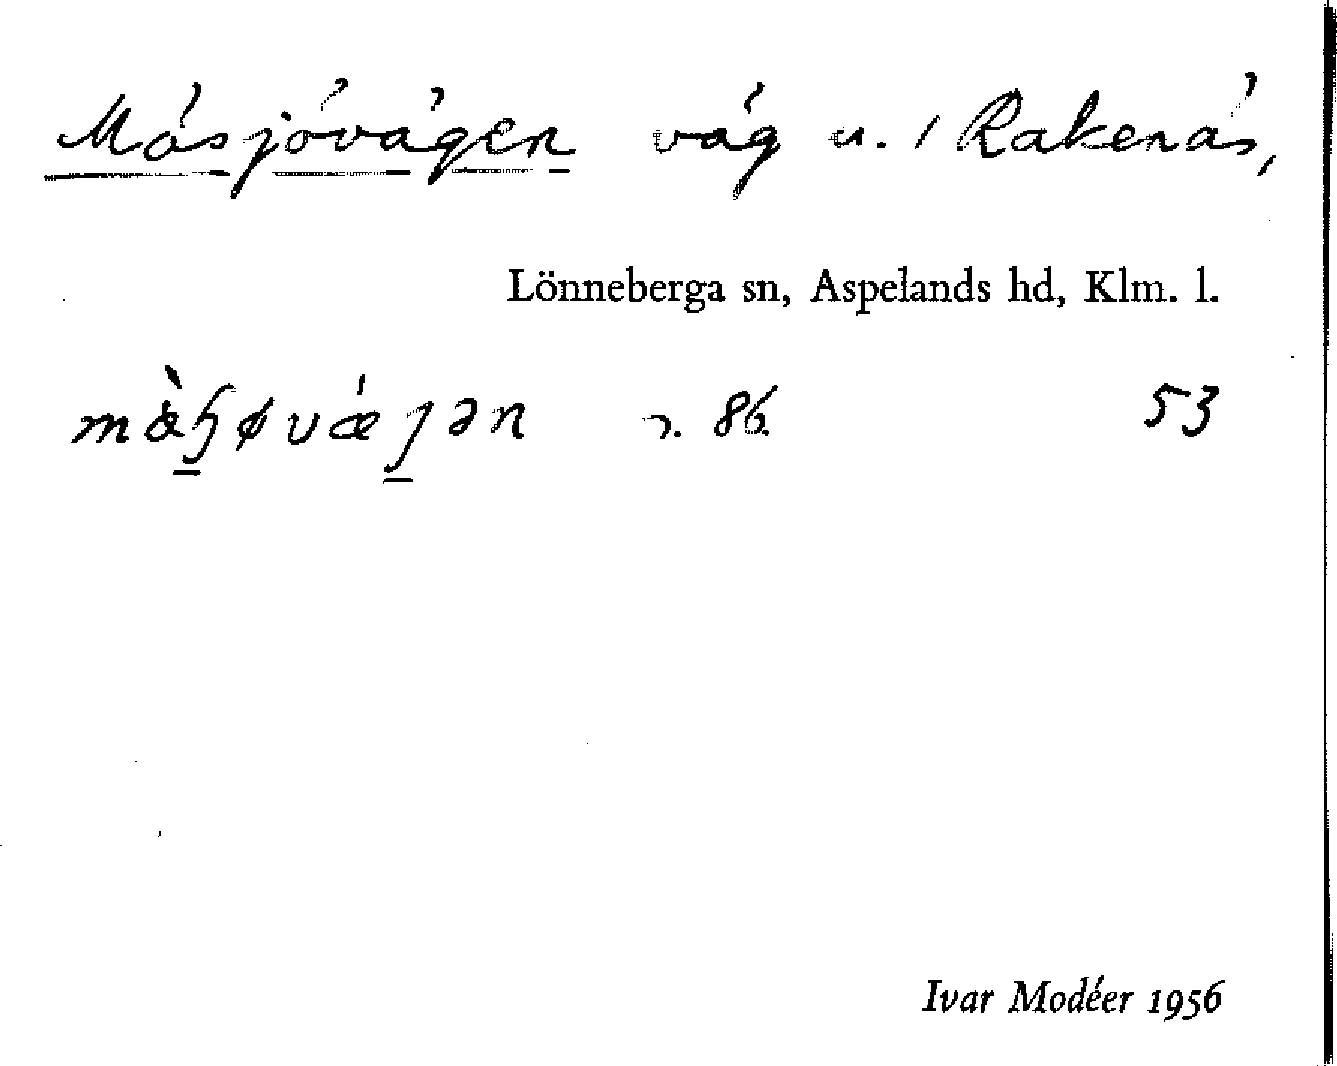 Mäsjövägen väg u. / Rakenäs,
Lönneberga sn, Aspelands hd, Klm. l.
mæ̀ɧøvǽȷən 86. 53
Ivar Modéer 1956